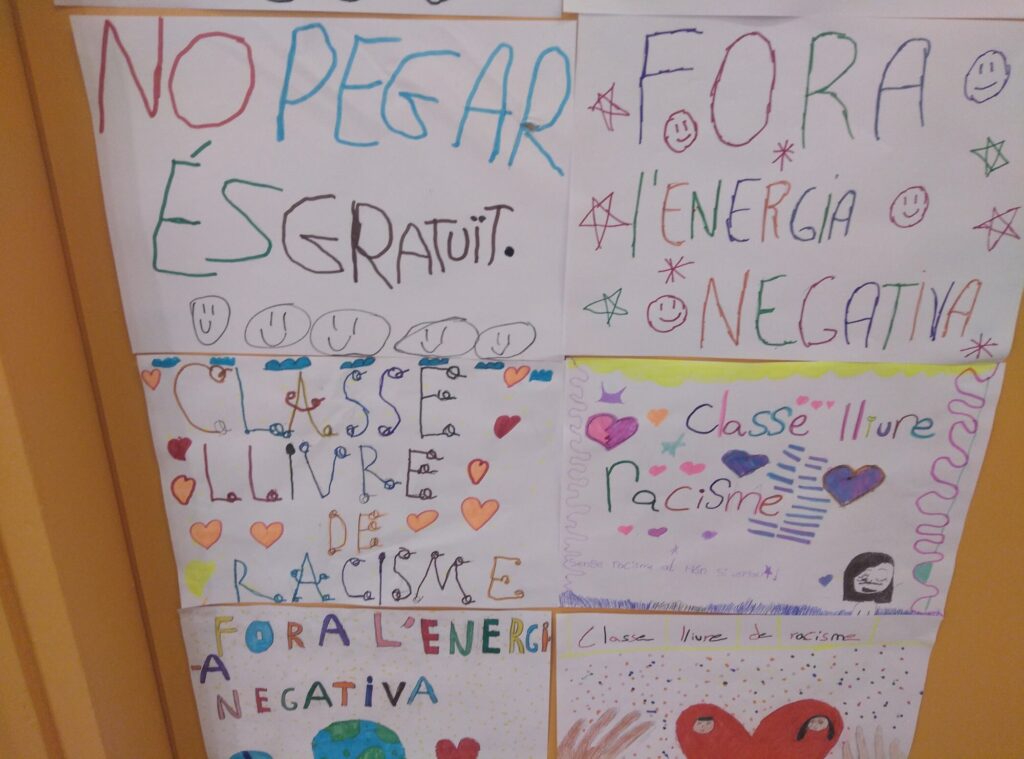 NO PEGAR
ÉS GRATUÏT.
FORA
l'ENERGiA
NEGATiVA
CLASSE
LLIVRE
DE
RACISME
classe lliure
racisme
FORA L'ENERGI
-A
NEGATIVA
Classe lliure de racisme